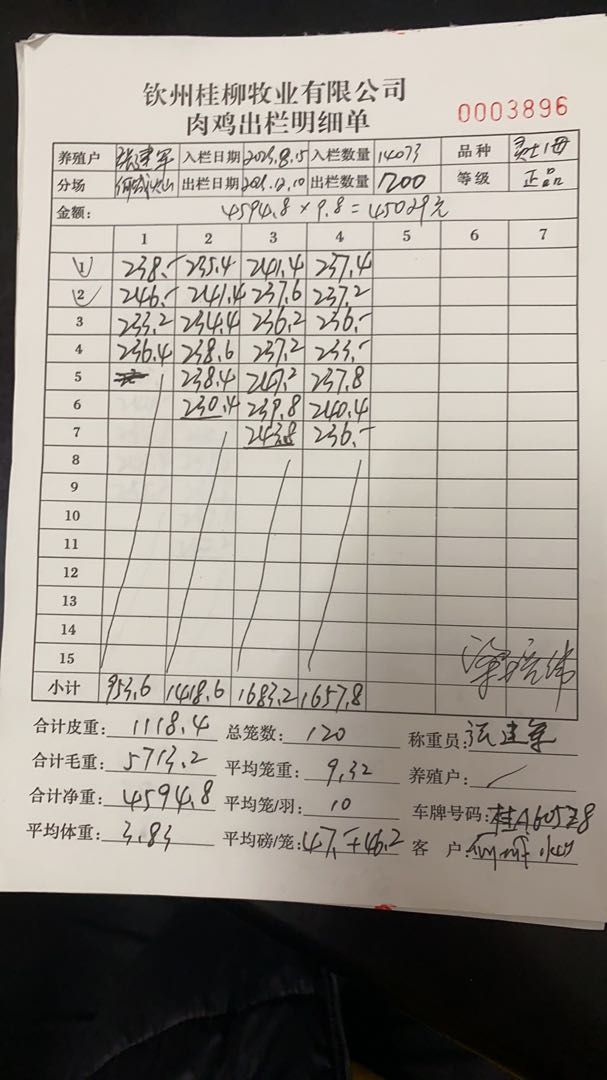 钦州桂柳牧业有限公司
肉鸡出栏明细单
0003896
养殖户 张建军 入栏日期 入栏数量 14073 品种
分场 出栏日期 出栏数量 1200 等级 正品
金额: 4594.8 × 9.8 = 45029元
1 2 3 4 5 6 7
1 238.- 235.4 241.4 237.4
2 246.- 241.4 237.6 237.2
3 233.2 234.4 236.2 236.-
4 236.4 238.6 237.2 233.-
5 238.4 247.2 237.8
6 230.4 239.8 240.4
7 243.8 236.-
8
9
10
11
12
13
14
15
小计 953.6 1418.6 1683.2 1657.8
合计皮重: 1118.4 总笼数: 120 称重员: 张建军
合计毛重: 5713.2 平均笼重: 9.32 养殖户:
合计净重: 4594.8 平均笼/羽: 10 车牌号码: 桂A605Z8
平均体重: 3.83 平均磅/笼: 47.-+46.2 客户: